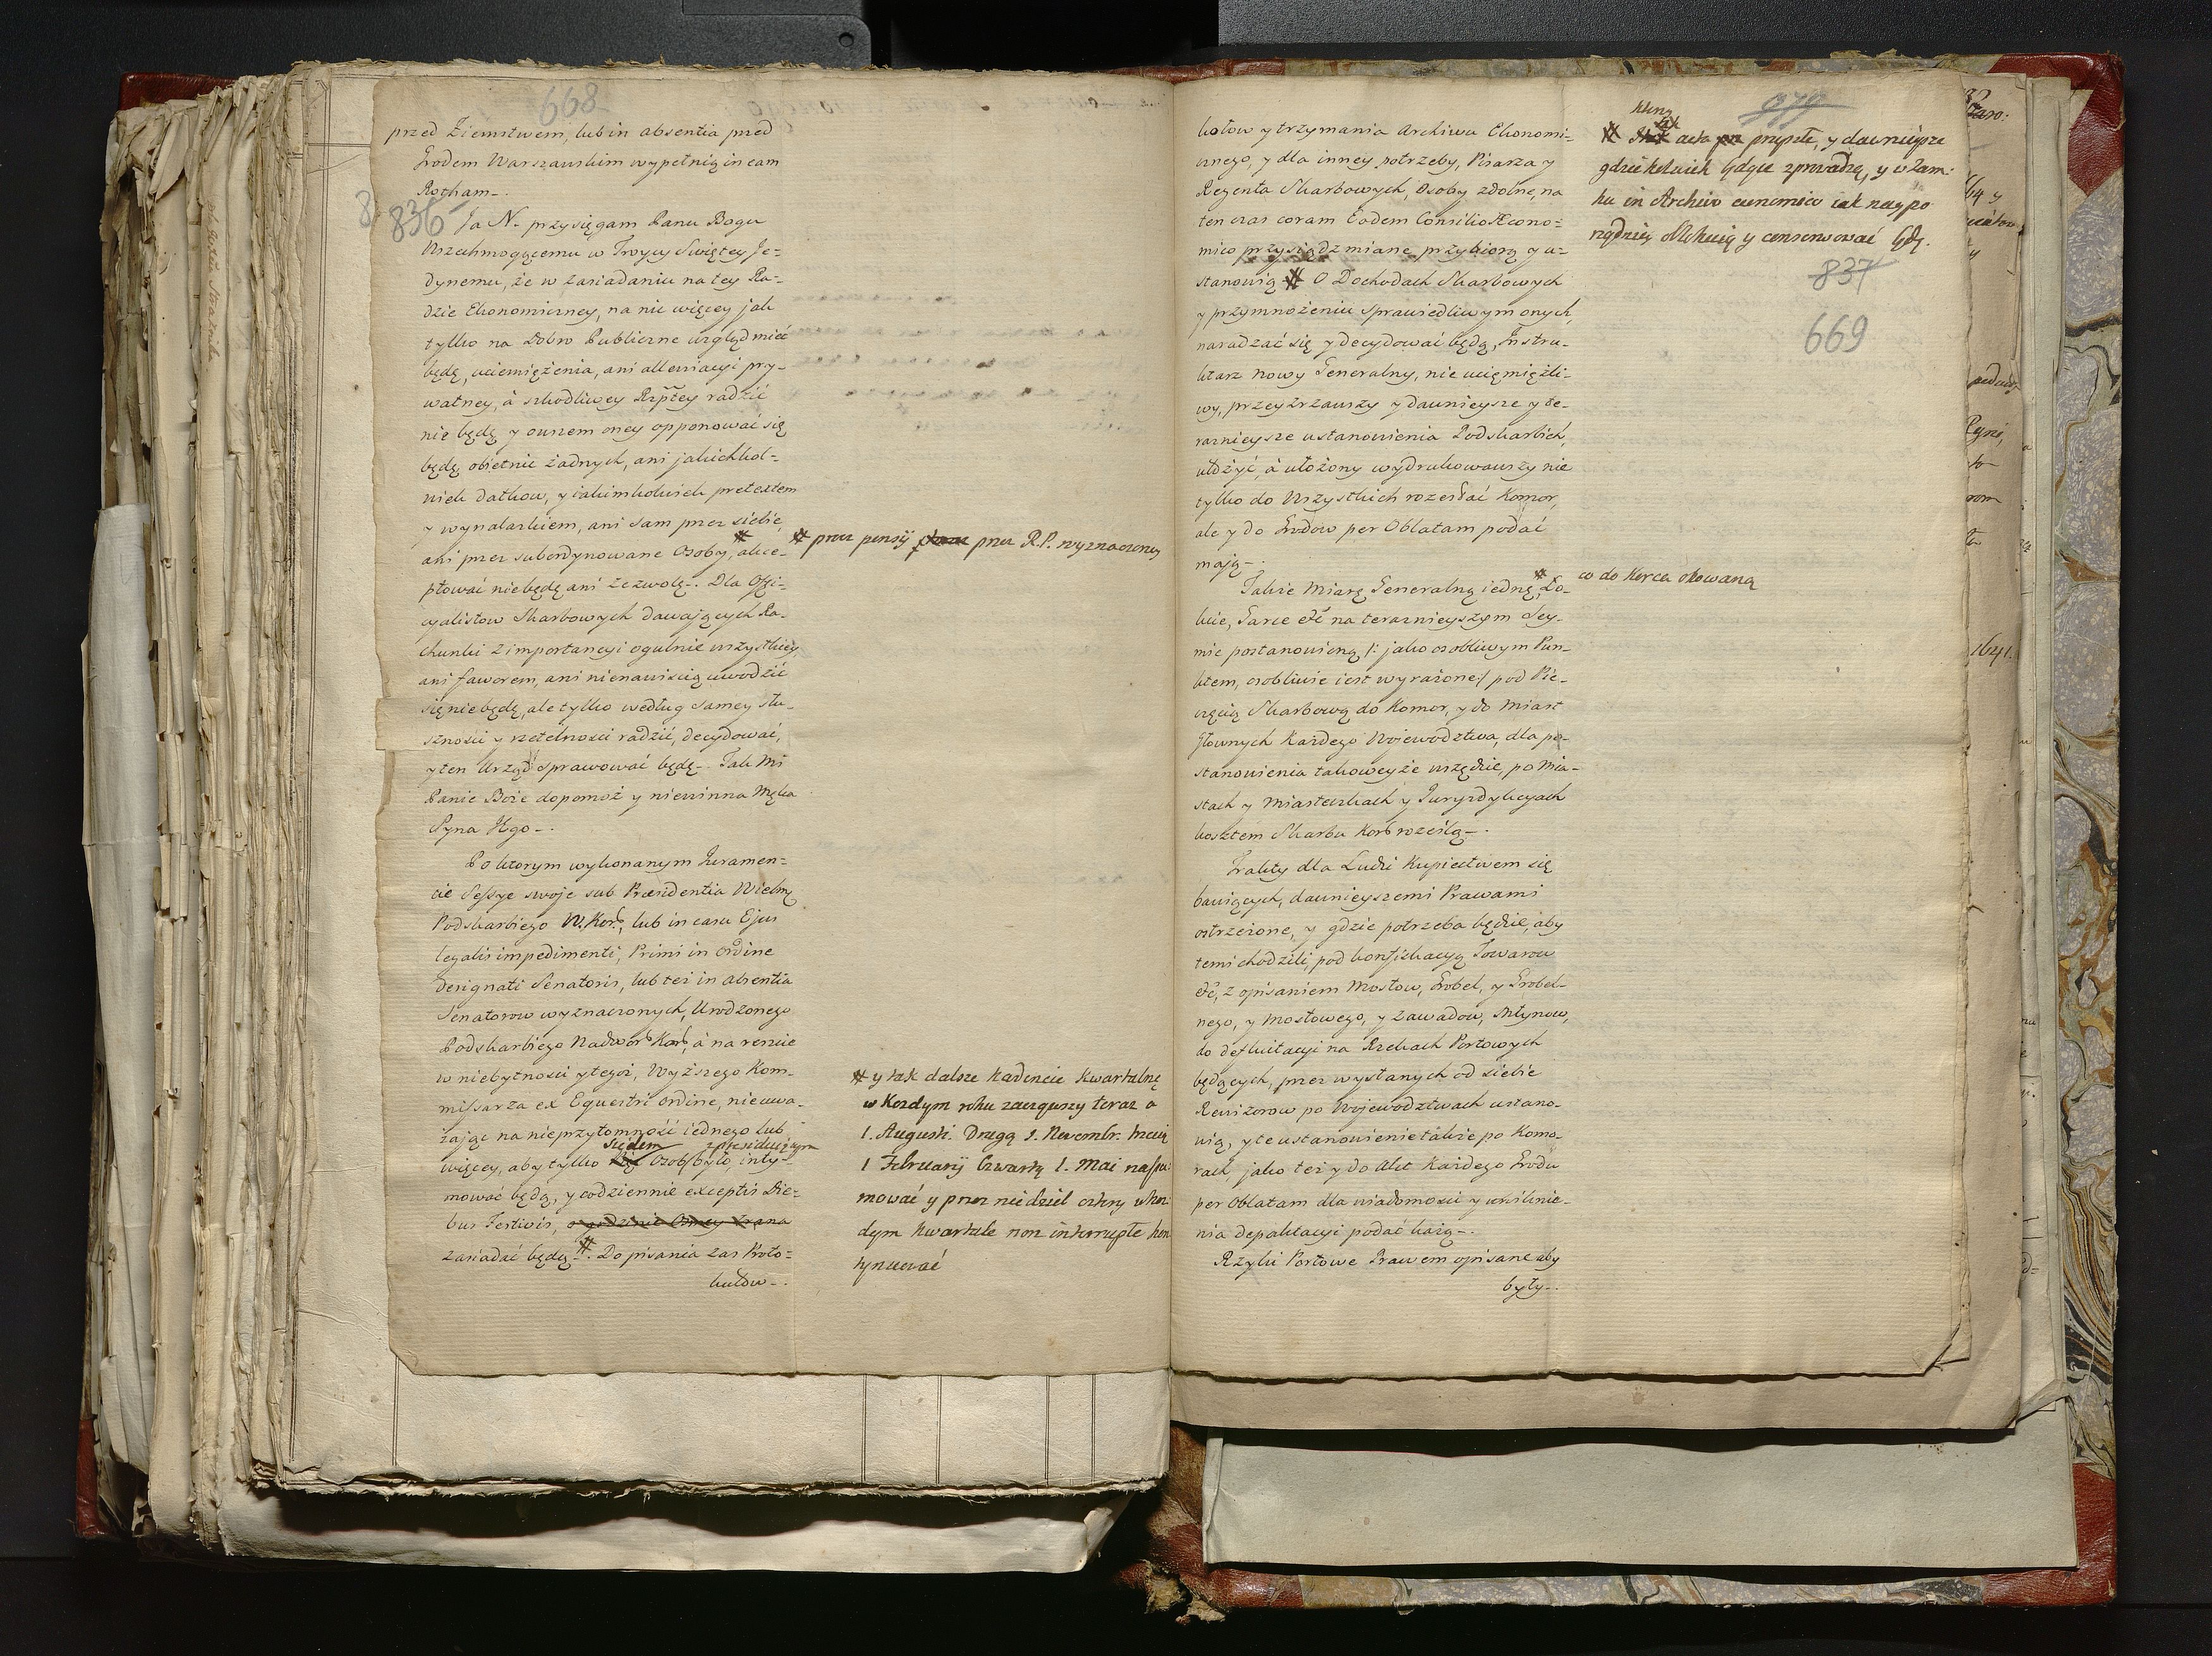 668
przed Ziemstwem, lub in absentia przed
Grodem Warszawskim wypełnią in eam
Rotham.
836
Ja N. przysięgam Panu Bogu
Wszechmogącemu w Troycy Swiętey Je-
dynemu, że w zasiadaniu na tey Ra-
dzie Ekonomiczney, na nic więcey jak
tylko na Dobro Publiczne wzgląd mieć
będę, uciemiężenia, ani allewiacyi pry-
watney, à szkodliwey Rzptey radzić
nie będę y owszem oney opponować się
będę, obietnic żadnych, ani jakichkol-
wiek datkow, y iakimkolwiek pretextem
y wynalaskiem, ani sam przez siebie,
ani przez subordynowane Osoby, # akce-
# prócz pensij przez R.P. wyznaczoney
ptować nie będę ani zezwolę. Dla Offi-
cyalistow Skarbowych dawających Ra-
chunki z importancyi ogulnie wszystkiey,
ani faworem, ani nienawiscią uwodzić
się nie będę, ale tylko według samey słu-
sznosci y rzetelnosci radzić, decydować,
y ten Urząd sprawować będę. Tak Mi
Panie Boże dopomoż y niewinna Męka
Syna Jego.
Po ktorym wykonanym Juramen-
cie Sessye swoje sub Præsidentia Wielm
Podskarbiego W. Kor., lub in casu Ejus
legalis impedimenti, Primi in ordine
designati Senatoris, lub też in absentia
Senatorow wyznaczonych, Urodzonego
Podskarbiego Nadwor Kor, à na reszcie
w niebytnosci y tegoż, Wyższego Kom-
missarza ex Equestri ordine, nieuwa-
żając na nieprzytomność iednego lub
siedem z prezidującym
więcey, aby tylko Osob było, inty-
mować będą, y codziennie exceptis Die-
bus Festivis, o godzinie Osmey zrana
zasiadać będą #. Do pisania zas Proto-
kułow.
# y tak dalsze Kadencie Kwartalnę
w Kożdym roku zacząwszy teraz a
1. Augusti. Drugą 1. Novembr. trzecią
1 Februarij Czwartą 1. Mai
mować y przez niedziel cztery w koż
dym kwartale non interrupte kon
tynuować
kołow y trzymania Archiwu Ekonomi-
cznego, y dla inney potrzeby, Pisarza y
Regenta Skarbowych, Osoby zdolne, na
ten czas coram Eodem Consilio Æcono-
mico przysiądz miane, przybiorą y u-
stanowią # O Dochodach Skarbowych
y przymnożeniu sprawiedliwym onych,
naradzać się y decydować będą, Instru-
ktarz nowy Generalny, nie uciemiężli-
wy, przeyzrzawszy y daunieysze y te-
raznieysze ustanowienia Podskarbich,
ułożyć, à ułożony wydrukowawszy nie
tylko do Wszystkich rozesłać Komor,
ale y do Grodow per Oblatam podać
mają.
Takie Miarę Generalną iednę, # Ło-
# co do Korca okowaną
kcie, Garce etc na teraznieyszym Sey-
mie postanowioną /: jako osobliwym Pun-
ktem, osobliwie iest wyrażone:/ pod Pie-
częcią Skarbową do Komor, y do Miast
Głownych Każdego Wojewodztwa, dla po-
stanowienia takowey że wszędzie, po Mia-
stach y Miasteczkach y Juryzdykcyach
kosztem Skarbu Kor rozeslą.
Trakty dla Ludzi Kupiectwem się
bawiących, daunieyszemi Prawami
ostrzeżone, y gdzie potrzeba będzie, aby
temi chodzili, pod konfiskacyą Towarow
etc, z opisaniem Mostow, Grobel, y Grobel-
nego, y Mostowego, y zawadow, Młynow,
do defluitacyi na Rzekach Portowych
będących, przez wysłanych od siebie
Rewizorow po Wojewodztwach ustano-
wią, y te ustanowienie takie po Komo-
rach, jako też y do Akt Każdego Grodu
per Oblatam dla wiadomosci y uniknie-
nia depaktacyi podać każą.
Rzyki Portowe Prawem opisane aby
były.
# acta przeszłe, y dawnieysze
gdziekolwiek będące zprowadzą, y w Zam-
ku in Archivo æconomico iak naypo
rządniey y conserwować będą.
837
669